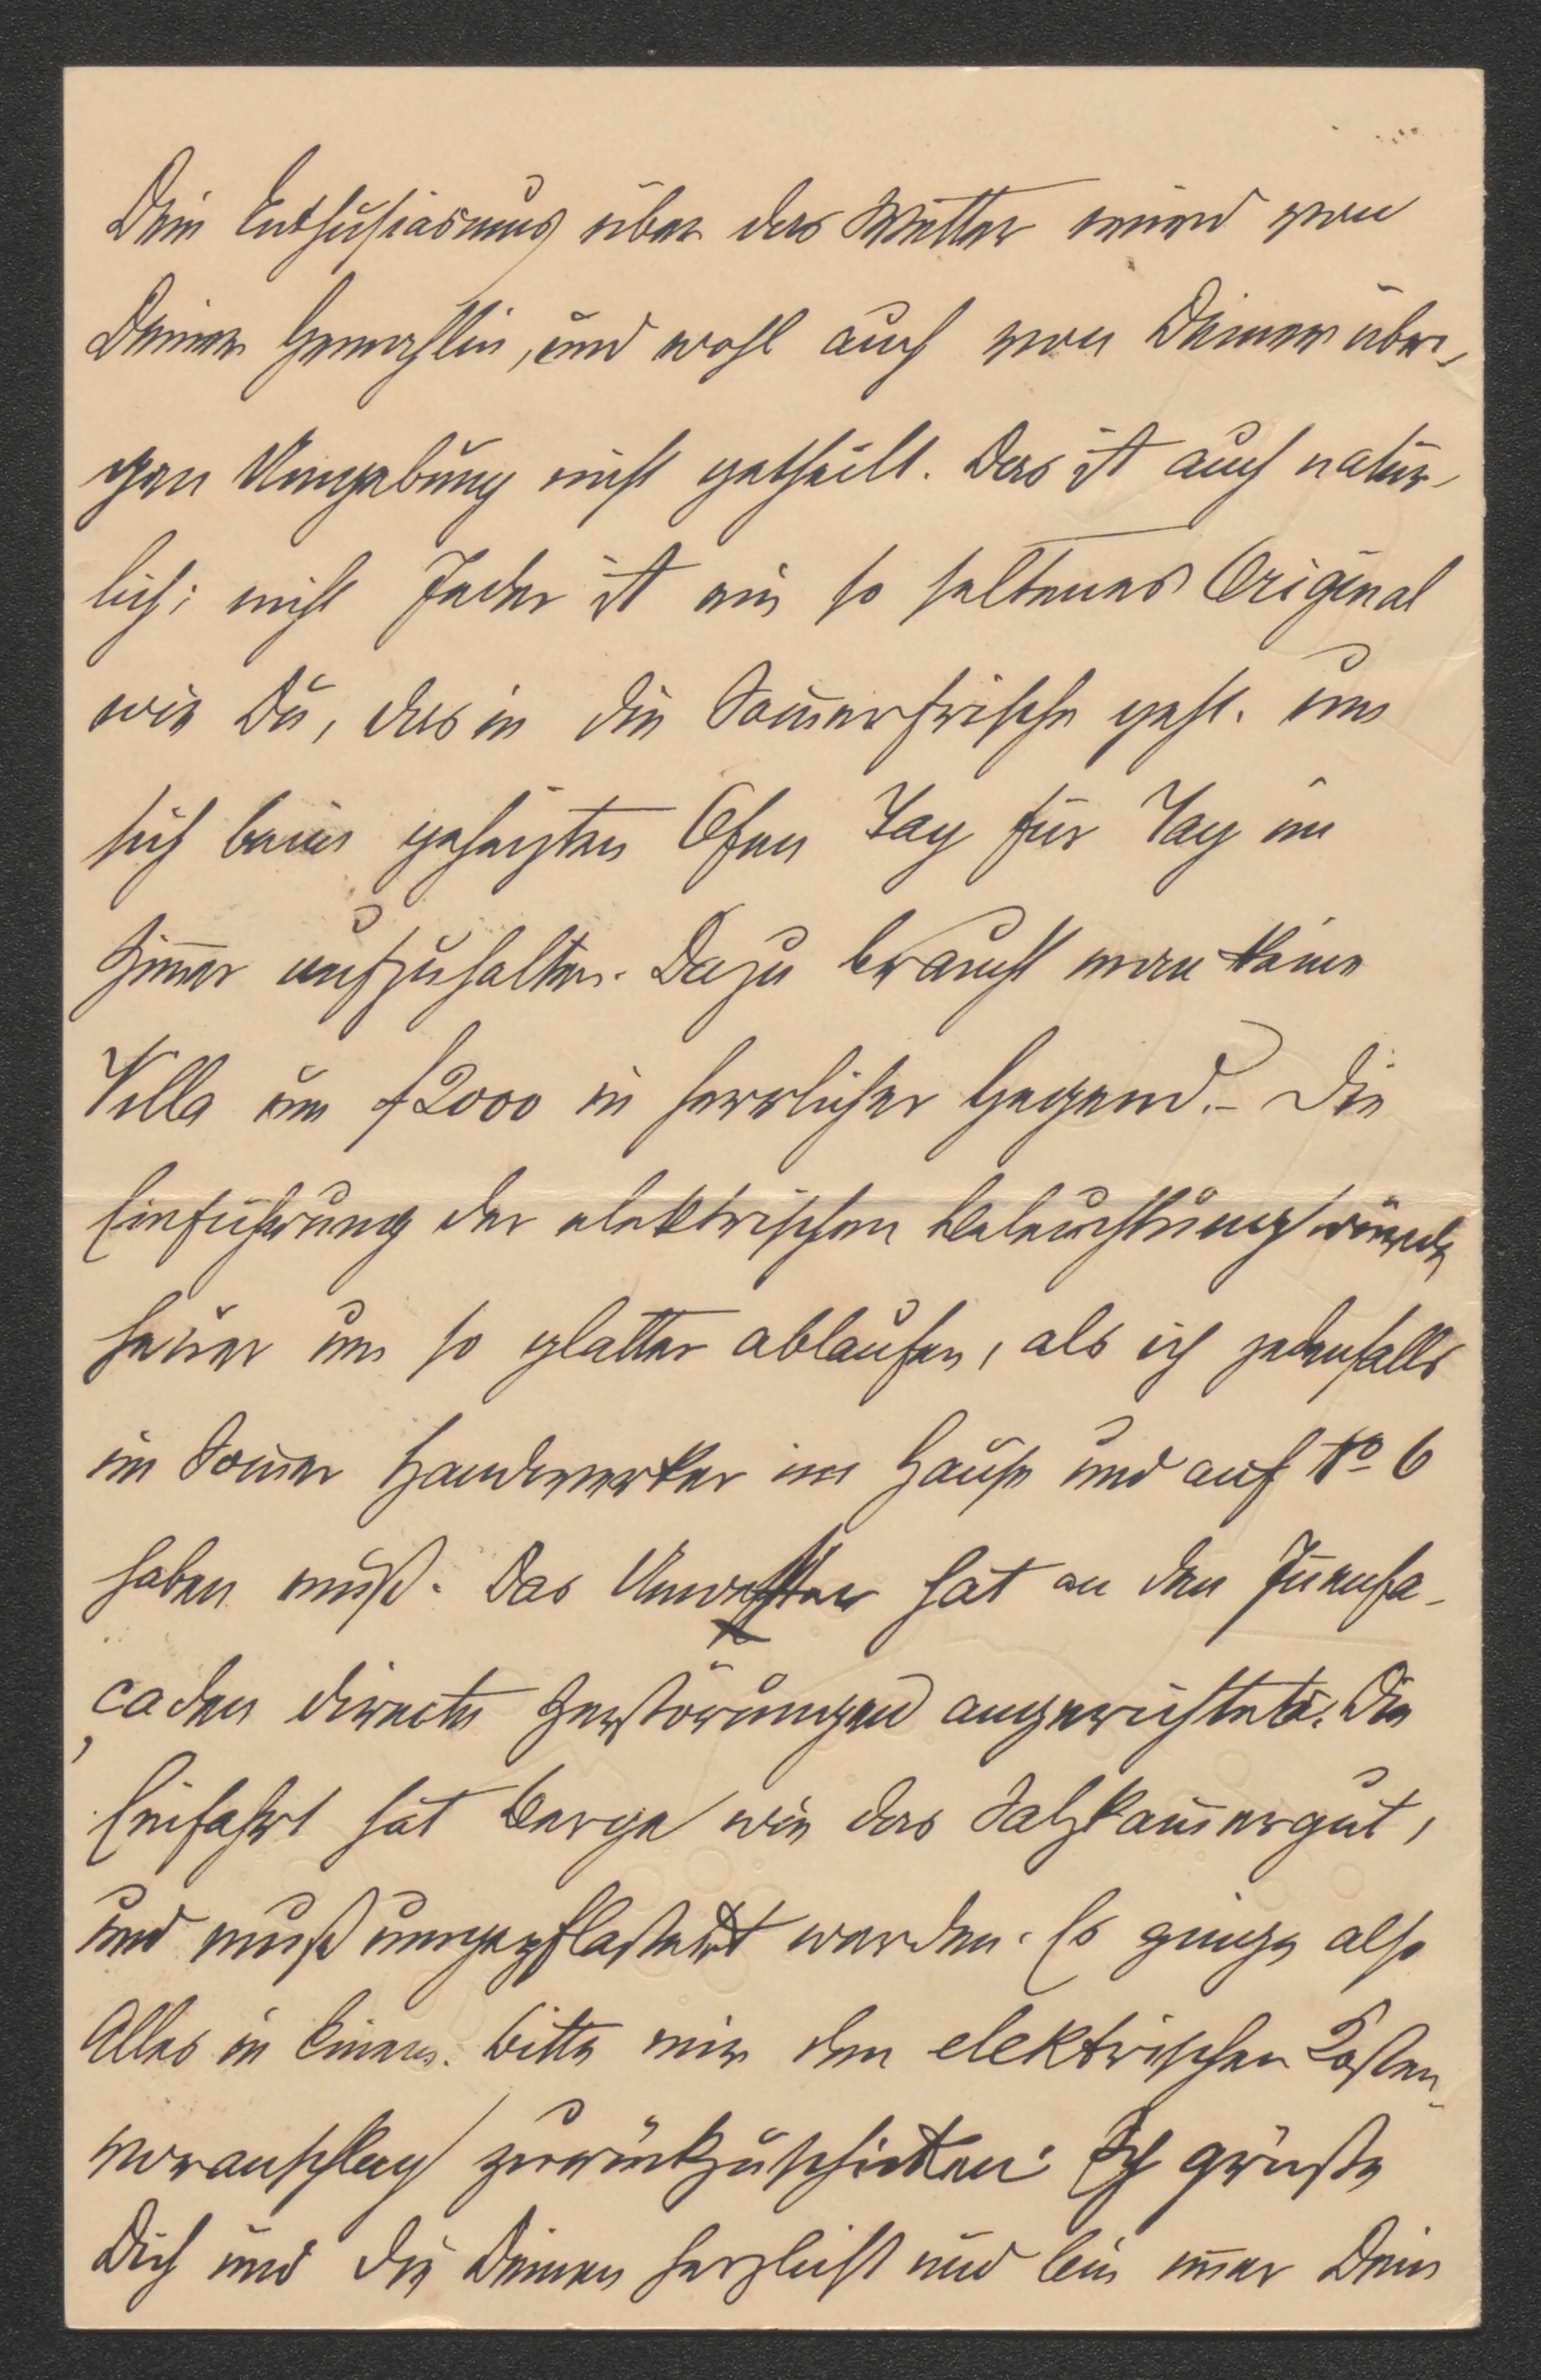 Dein Enthusiasmus über das Wetter wird von
Deiner Gemahlin, und wohl auch von Deiner übri-
gen Umgebung nicht getheilt. Das ist auch natür-
lich; nicht Jeder ist ein so seltenes Original
wie Du, das in die Som̄erfrische geht, um
sich beim geheizten Ofen Tag für Tag im
Zim̄er aufzuhalten. Dazu braucht man keine
Villa um f 2000 in herrlicher Gegend. – Die
Einführung der elektrischen Beleuchtung würde
heuer um so glatter ablaufen, als ich jedenfalls
im Som̄er Handwerker im Hause und auf No 6
haben muß. Das Unwetter hat an den Innenfa-
çaden directe Zerstörungen angerichtet. Die
Einfahrt hat Berge wie das Salzkam̄ergut,
und muß umgepflastert werden. Es ginge also
Alles in Einem. Bitte mir den elektrischen Kosten-
voranschlag zurückzuschicken. Ich grüße
Dich und die Deinen herzlichst und bin im̄er Dein